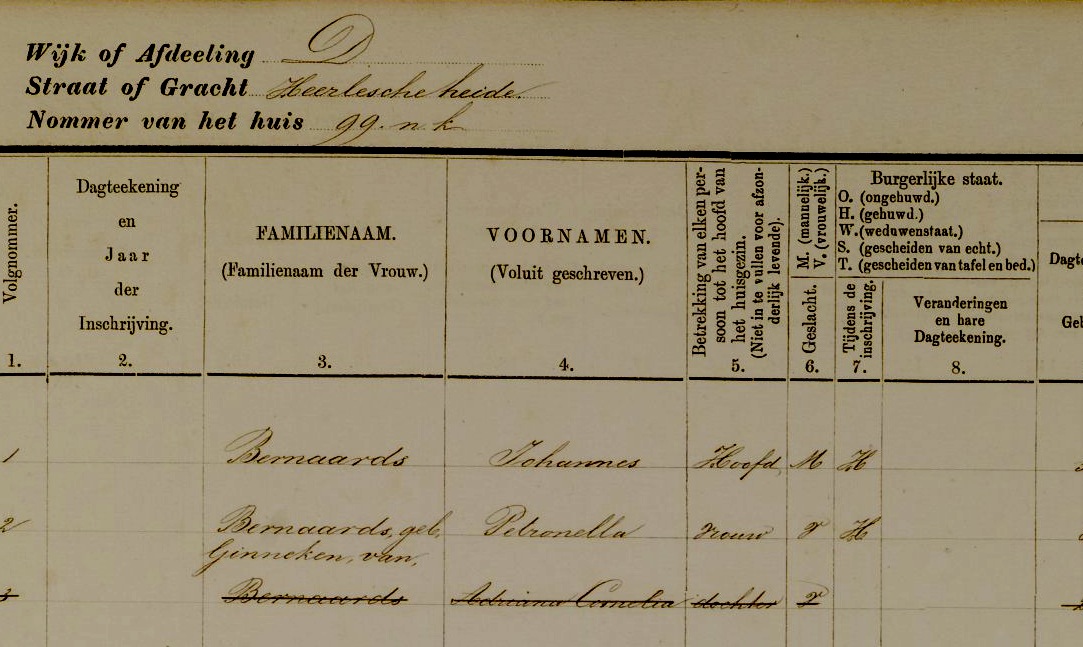 Wijk of Afdeeling D
Straat of Gracht Heerlesche heide
Nommer van het huis 99. n k
Volgnommer.
1.
Dagteekening
en
Jaar
der
Inschrijving.
2.
FAMILIENAAM.
(Familienaam der Vrouw.)
3.
VOORNAMEN.
(Voluit geschreven.)
4.
Betrekking van elken per-
soon tot het hoofd van
het huisgezin.
(Niet in te vullen voor afzon-
derlijk levende).
5.
M. (mannelijk.)
V. (vrouwelijk.)
Geslacht.
6.
Burgerlijke staat.
O. (ongehuwd.)
H. (gehuwd.)
W. (weduwenstaat.)
S. (gescheiden van echt.)
T. (gescheiden van tafel en bed.)
Tijdens de
inschrijving.
7.
Veranderingen
en hare
Dagteekening.
8.
Dagte
Geb
1 Bernaards Johannes Hoofd M H
2 Bernaards, geb. Petronella vrouw V H
Ginneken, van,
3 Bernaards Adriana Cornelia dochter V